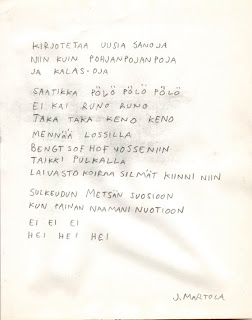 KIRJOTETAA UUSIA SANOJA
NIIN KUIN POHJANPOJANPOJA
JA KALAS-OJA
SAATIKKA PÖLÖ PÖLÖ PÖLÖ
EI KAI RUNO RUNO
TAKA TAKA KENO KENO
MENNÄÄ LOSSILLA
BENGT SOF HOF VOSSENIIN
TAIKKI PULKALLA
LAIVASTO KOIRAA SILMÄT KIINNI NIIN
SULKEUDUN METSÄN SUOSIOON
KUN PAINAN NAAMANI NUOTIOON
EI EI EI
HEI HEI HEI
J. MARTOLA